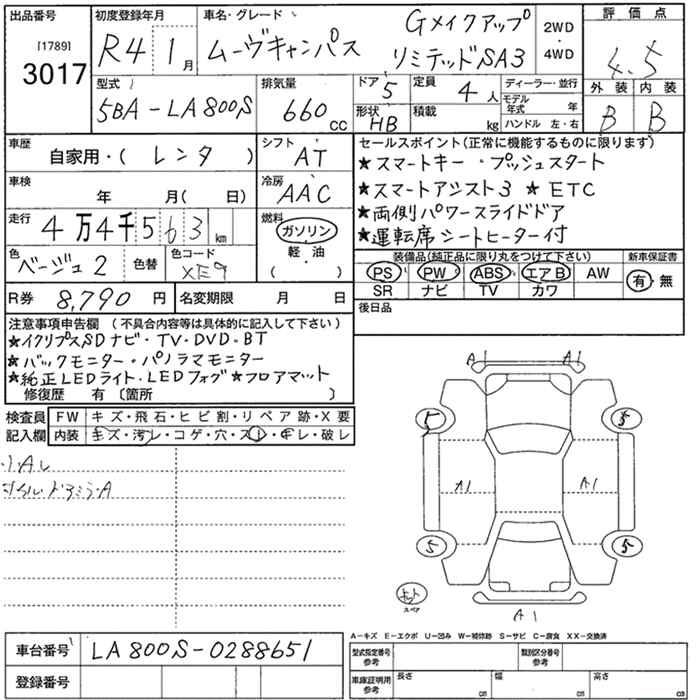 出品番号 [1789] 3017
初度登録年月 R4年1月
車名・グレード ムーヴキャンバス Gメイクアップ リミテッドSA3
2WD・4WD
評価点 4.5
外装 B 内装 B
型式 5BA-LA800S
排気量 660 CC
ドア 5 定員 4人
形状 HB 積載 kg
ディーラー・並行
モデル年式 年
ハンドル 左・右
車歴 自家用・(レンタ)
シフト AT
車検 年 月(日)
冷房 AAC
走行 4万4千563km
燃料 ガソリン 軽・油 ( )
色 ベージュ2 色替 色コード XE9
R券 8,790円 名変期限 月 日
セールスポイント(正常に機能するものに限ります)
★スマートキー・プッシュスタート
★スマートアシスト3 ★ETC
★両側パワースライドドア
★運転席シートヒーター付
装備品(純正品に限り丸をつけて下さい) 新車保証書
PS PW ABS エアB AW 有・無
SR ナビ TV カワ
後日品
注意事項申告欄 (不具合内容等は具体的に記入して下さい)
★イクリプスSDナビ・TV・DVD・BT
★バックモニター・パノラマモニター
★純正LEDライト・LEDフォグ★フロアマット
修復歴 有〔箇所 〕
検査員記入欄
FW キズ・飛石・ヒビ割・リペア跡・X要
内装 キズ・汚レ・コゲ・穴・スレ・ギレ・破レ
A1 A1
5 5
A1 A1
5 5
スペア
A1
A-キズ E-エクボ U-凹み W-補修跡 S-サビ C-腐食 XX-交換済
車台番号 LA800S-0288651
登録番号
型式指定番号参考 類別区分番号参考
車庫証明用参考 長さ cm 幅 cm 高さ cm